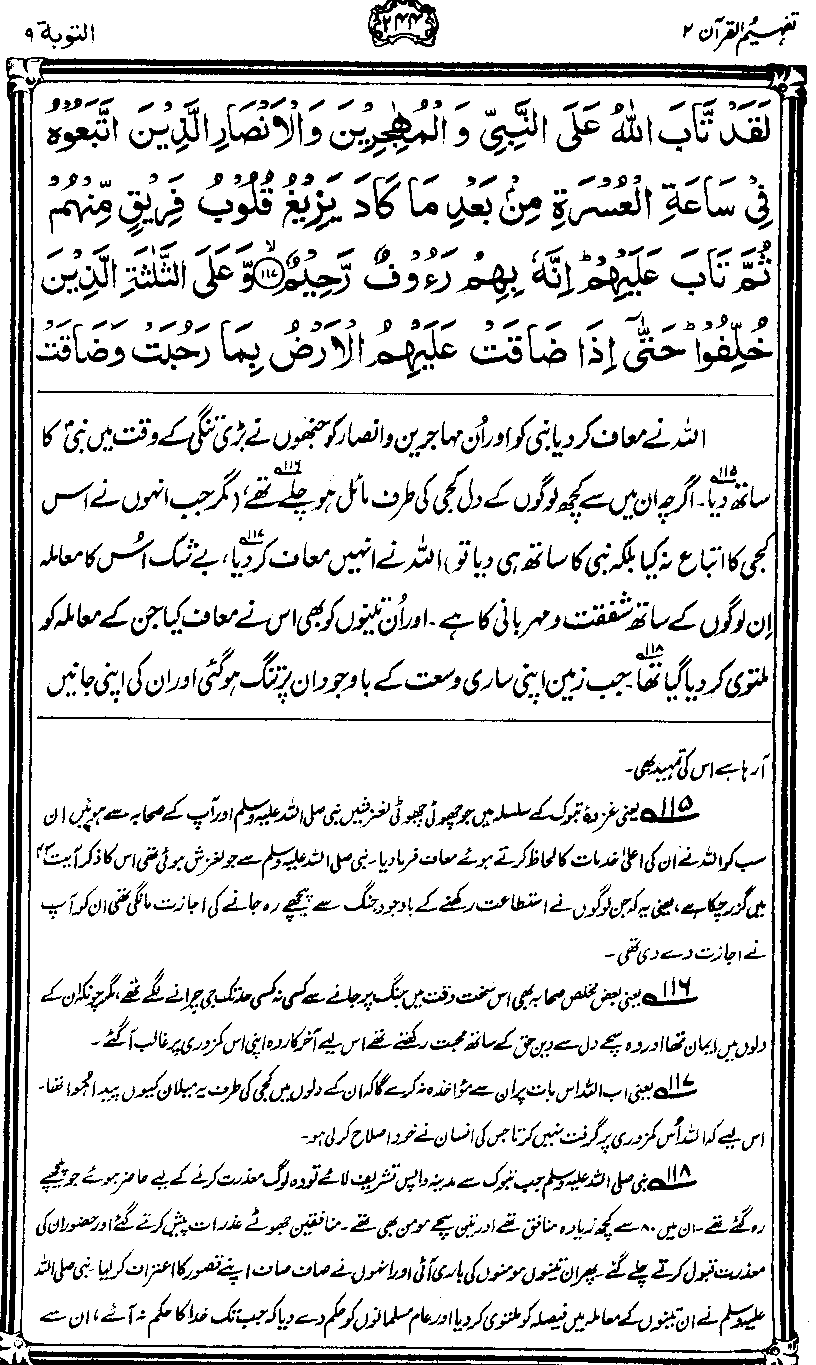 تفہیم القرآن ۲
۲۴۴
التوبۃ ۹
لَقَدْ تَّابَ اللّٰهُ عَلَى النَّبِيِّ وَ الْمُهٰجِرِيْنَ وَ الْاَنْصَارِ الَّذِيْنَ اتَّبَعُوْهُ
فِيْ سَاعَةِ الْعُسْرَةِ مِنْۢ بَعْدِ مَا كَادَ يَزِيْغُ قُلُوْبُ فَرِيْقٍ مِّنْهُمْ
ثُمَّ تَابَ عَلَيْهِمْ ؕ اِنَّهٗ بِهِمْ رَءُوْفٌ رَّحِيْمٌ ۙ﴿۱۱۷﴾ وَّ عَلَى الثَّلٰثَةِ الَّذِيْنَ
خُلِّفُوْا ؕ حَتّٰۤى اِذَا ضَاقَتْ عَلَيْهِمُ الْاَرْضُ بِمَا رَحُبَتْ وَ ضَاقَتْ
اللہ نے معاف کر دیا نبی کو اور اُن مہاجرین و انصار کو جنھوں نے بڑی تنگی کے وقت میں نبیؐ کا
ساتھ دیا۔ ۱۱۵ اگرچہ ان میں سے کچھ لوگوں کے دل کجی کی طرف مائل ہو چلے تھے ۱۱۶، (مگر جب انہوں نے اس
کجی کا اتباع نہ کیا بلکہ نبی کا ساتھ ہی دیا تو) اللہ نے انہیں معاف کر دیا ۱۱۷، بے شک اُس کا معاملہ
اِن لوگوں کے ساتھ شفقت و مہربانی کا ہے۔ اور اُن تینوں کو بھی اس نے معاف کیا جن کے معاملہ کو
ملتوی کر دیا گیا تھا ۱۱۸۔ جب زمین اپنی ساری وسعت کے باوجود ان پر تنگ ہو گئی اور ان کی اپنی جانیں
آ رہا ہے اس کی تمہید تھی۔
۱۱۵ یعنی غزوۂ تبوک کے سلسلہ میں جو چھوٹی چھوٹی لغزشیں نبی صلی اللہ علیہ وسلم اور آپ کے صحابہ سے ہوئیں ان
سب کو اللہ نے ان کی اعلیٰ خدمات کا لحاظ کرتے ہوئے معاف فرما دیا۔ نبی صلی اللہ علیہ وسلم سے جو لغزش ہوئی تھی اس کا ذکر آیت ۴۳
میں گزر چکا ہے، یعنی یہ کہ جن لوگوں نے استطاعت رکھنے کے باوجود جنگ سے پیچھے رہ جانے کی اجازت مانگی تھی ان کو آپ
نے اجازت دے دی تھی۔
۱۱۶ یعنی بعض مخلص صحابہ بھی اس سخت وقت میں جنگ پر جانے سے کسی نہ کسی حد تک جی چرانے لگے تھے، مگر چونکہ ان کے
دلوں میں ایمان تھا اور وہ سچے دل سے دین حق کے ساتھ محبت رکھتے تھے اس لیے آخر کار وہ اپنی اس کمزوری پر غالب آ گئے۔
۱۱۷ یعنی اب اللہ اس بات پر ان سے مؤاخذہ نہ کرے گا کہ ان کے دلوں میں کجی کی طرف یہ میلان کیوں پیدا ہوا تھا۔
اس لیے کہ اللہ اُس کمزوری پر گرفت نہیں کرتا جس کی انسان نے خود اصلاح کر لی ہو۔
۱۱۸ نبی صلی اللہ علیہ وسلم جب تبوک سے مدینہ واپس تشریف لائے تو وہ لوگ معذرت کرنے کے لیے حاضر ہوئے جو پیچھے
رہ گئے تھے۔ ان میں ۸۰ سے کچھ زیادہ منافق تھے اور تین سچے مومن بھی تھے۔ منافقین جھوٹے عذرات پیش کرتے گئے اور حضور ان کی
معذرت قبول کرتے چلے گئے۔ پھر ان تینوں مومنوں کی باری آئی اور انہوں نے صاف صاف اپنے قصور کا اعتراف کر لیا۔ نبی صلی اللہ
علیہ وسلم نے ان تینوں کے معاملہ میں فیصلہ کو ملتوی کر دیا اور عام مسلمانوں کو حکم دے دیا کہ جب تک خدا کا حکم نہ آئے، ان سے